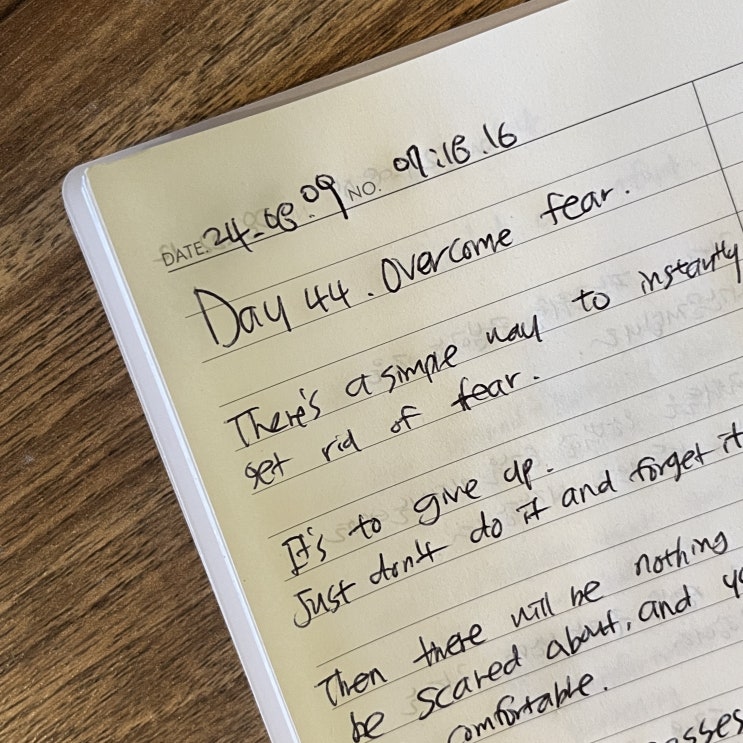 DATE. 24.08.09 NO. 07:18.16
Day 44. Overcome fear.
There's a simple way to instantly
get rid of fear.
It's to give up.
Just don't do it and forget it
Then there will be nothing
be scared about, and
comfortable.